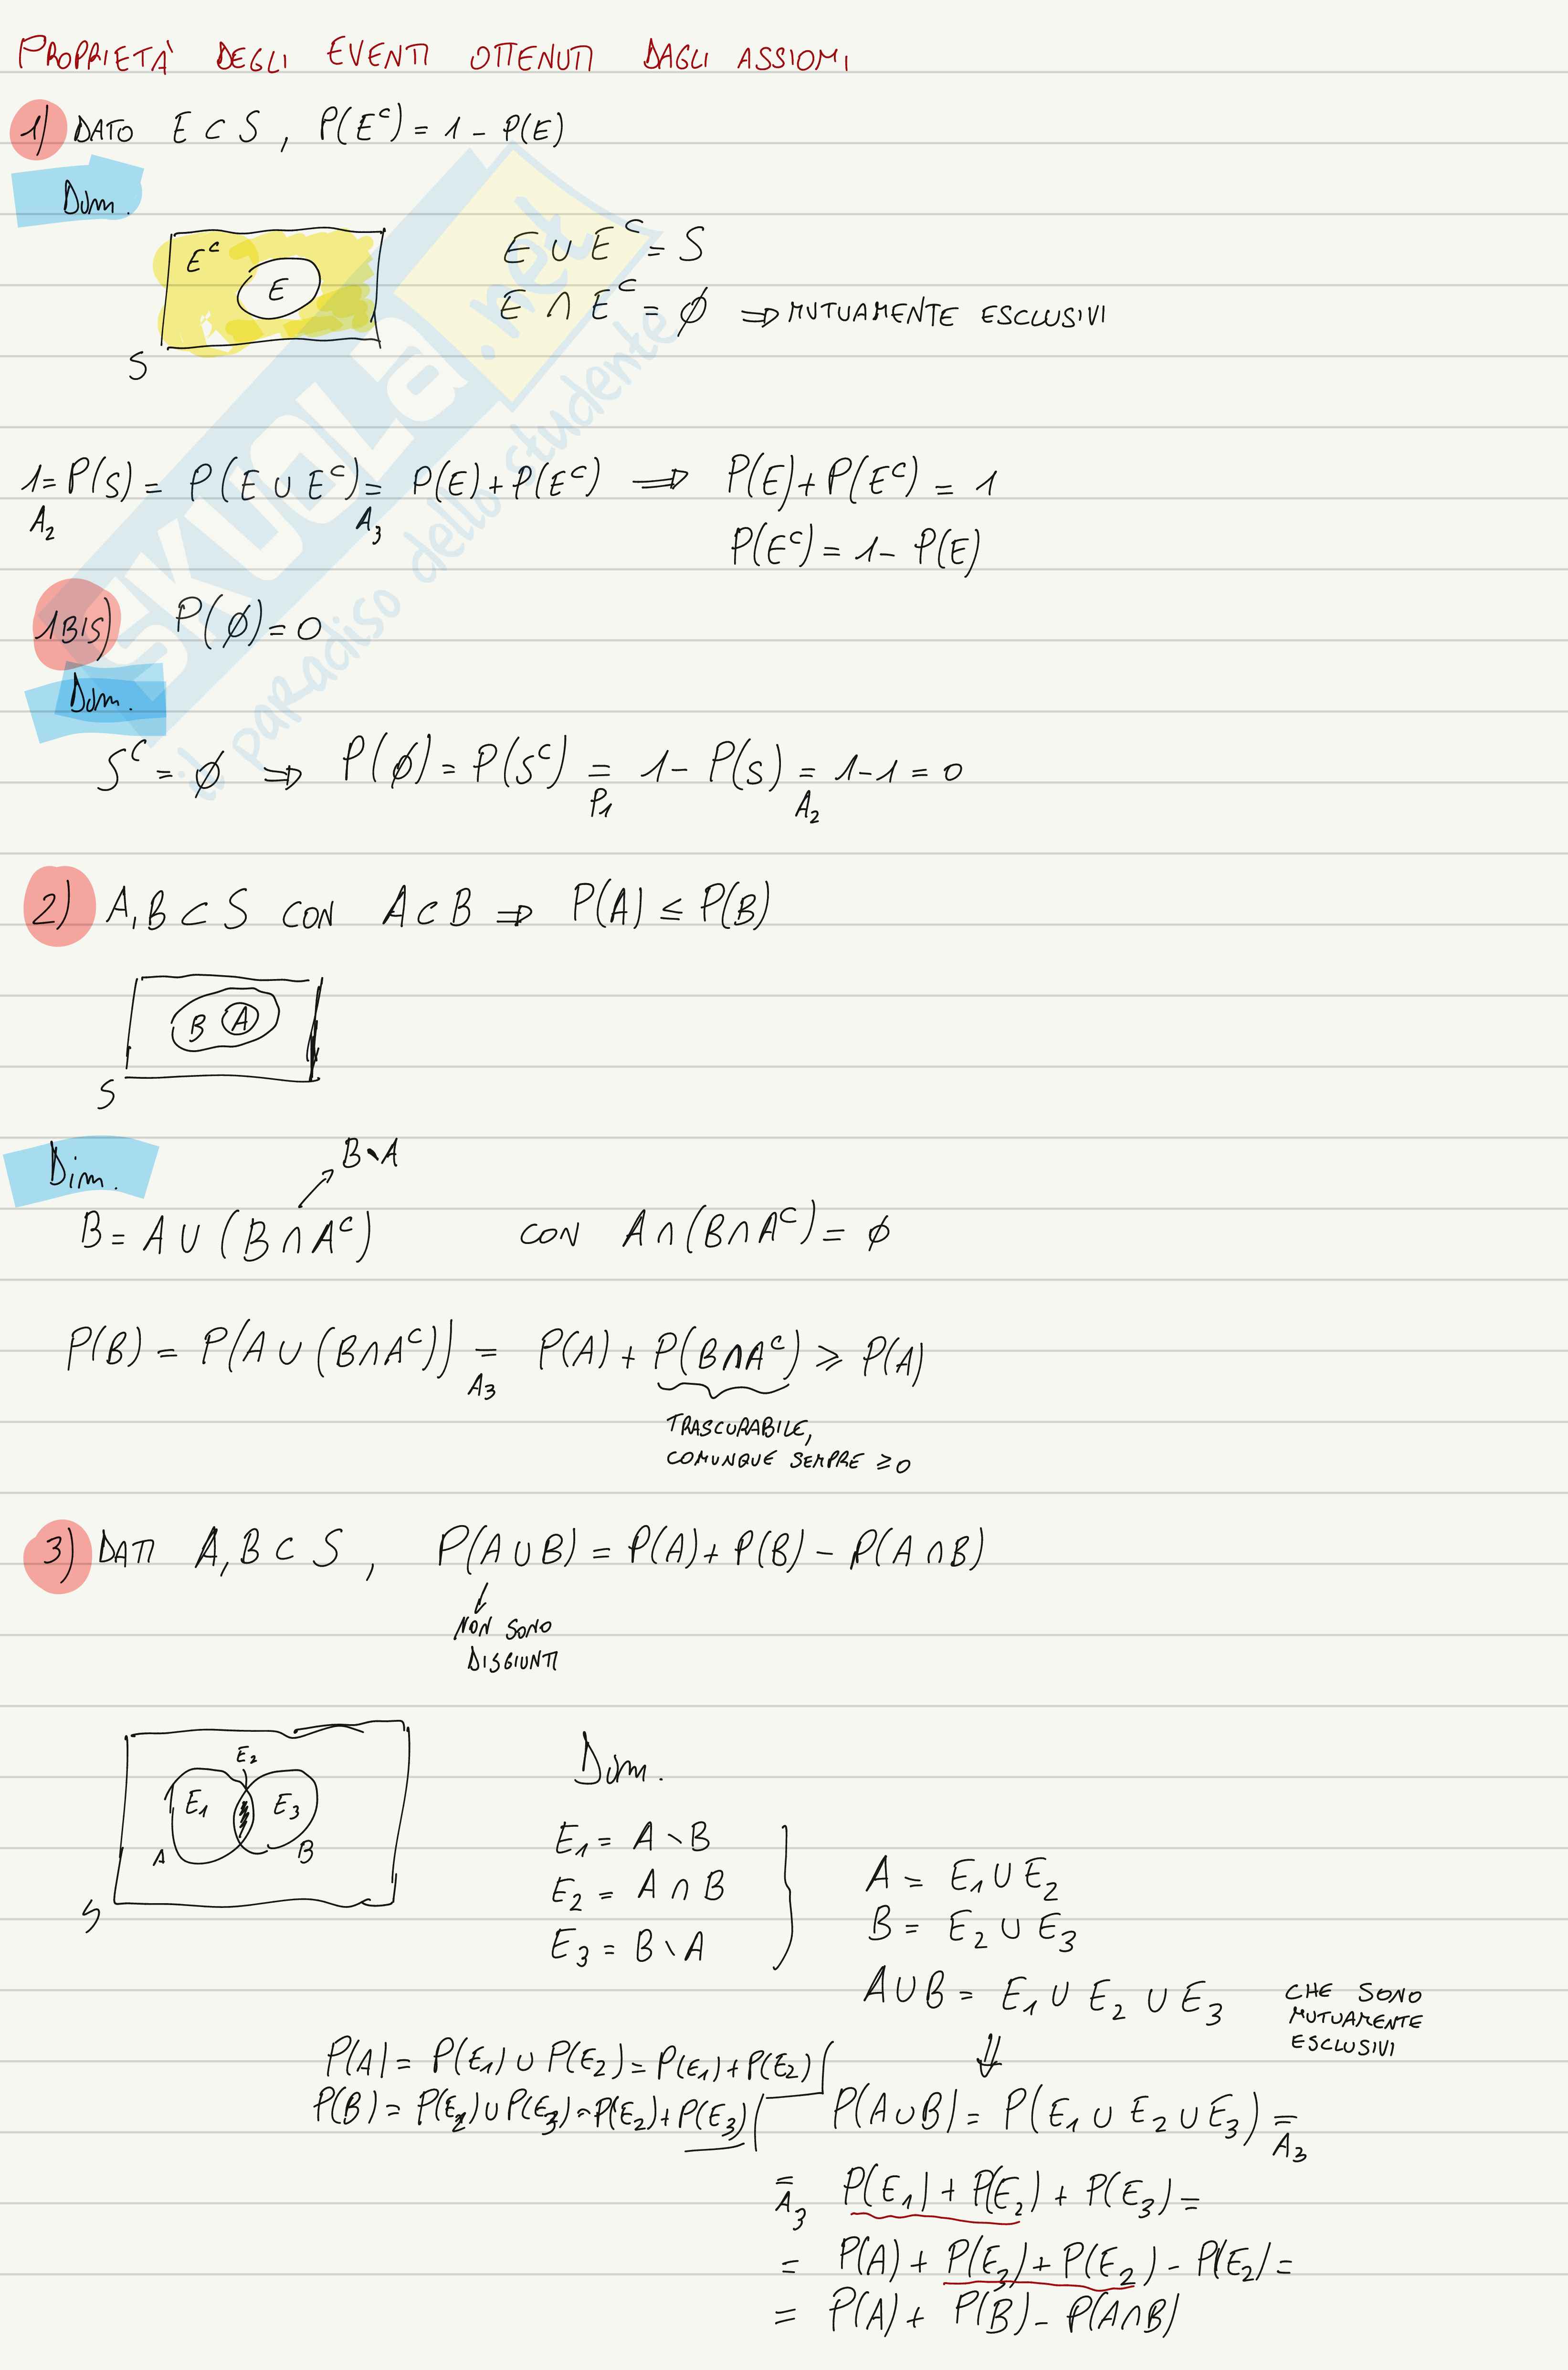 PROPRIETÀ DEGLI EVENTI OTTENUTI DAGLI ASSIOMI
1) DATO E ⊂ S, P(Eᶜ) = 1 - P(E)
Dim.
Eᶜ
E
S
E ∪ Eᶜ = S
E ∩ Eᶜ = ∅ ⇒ MUTUAMENTE ESCLUSIVI
1 = P(S) = P(E ∪ Eᶜ) = P(E) + P(Eᶜ) ⇒ P(E) + P(Eᶜ) = 1
A₂ A₃
P(Eᶜ) = 1 - P(E)
1 BIS) P(∅) = 0
Dim.
Sᶜ = ∅ ⇒ P(∅) = P(Sᶜ) = 1 - P(S) = 1 - 1 = 0
P1 A₂
2) A, B ⊂ S CON A ⊂ B ⇒ P(A) ≤ P(B)
B A
S
Dim.
B∖A
B = A ∪ (B ∩ Aᶜ) CON A ∩ (B ∩ Aᶜ) = ∅
P(B) = P(A ∪ (B ∩ Aᶜ)) = P(A) + P(B ∩ Aᶜ) ⩾ P(A)
A₃
TRASCURABILE,
COMUNQUE SEMPRE ⩾ 0
3) DATI A, B ⊂ S, P(A ∪ B) = P(A) + P(B) - P(A ∩ B)
↓
NON SONO
DISGIUNTI
E₂
E₁ E₃
A B
S
Dim.
E₁ = A ∖ B
E₂ = A ∩ B
E₃ = B ∖ A
A = E₁ ∪ E₂
B = E₂ ∪ E₃
A ∪ B = E₁ ∪ E₂ ∪ E₃
CHE SONO
MUTUAMENTE
ESCLUSIVI
⇓
P(A) = P(E₁) ∪ P(E₂) = P(E₁) + P(E₂)
P(B) = P(E₂) ∪ P(E₃) = P(E₂) + P(E₃)
P(A ∪ B) = P(E₁ ∪ E₂ ∪ E₃) =
A₃
= P(E₁) + P(E₂) + P(E₃) =
A₃
= P(A) + P(E₃) + P(E₂) - P(E₂) =
= P(A) + P(B) - P(A ∩ B)
SKUOLa.net
il paradiso dello studente